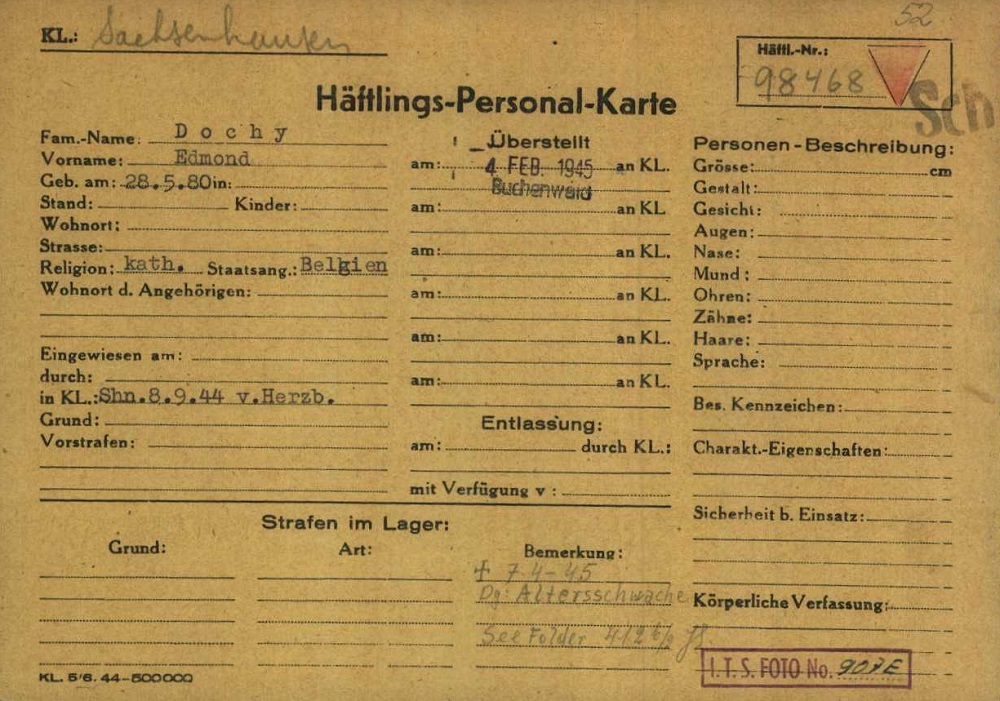 52
KL.: Sachsenhausen
Häftl.-Nr.:
98468
Sch
Häftlings-Personal-Karte
Fam.-Name: Dochy
Vorname: Edmond
Geb. am: 28.5.80 in:
Stand: Kinder:
Wohnort:
Strasse:
Religion: kath. Staatsang.: Belgien
Wohnort d. Angehörigen:
Eingewiesen am:
durch:
in KL.: Shn.8.9.44 v.Herzb.
Grund:
Vorstrafen:
Überstellt
am: 4. FEB. 1945 an KL.
Buchenwald
am: an KL
am: an KL.
am: an KL.
am: an KL.
am: an KL.
Entlassung:
am: durch KL.:
mit Verfügung v :
Personen-Beschreibung:
Grösse: cm
Gestalt:
Gesicht:
Augen:
Nase:
Mund:
Ohren:
Zähne:
Haare:
Sprache:
Bes. Kennzeichen:
Charakt.-Eigenschaften:
Sicherheit b. Einsatz:
Körperliche Verfassung:
Strafen im Lager:
Grund: Art: Bemerkung:
† 7-4-45
Dg: Altersschwäche
See Folder
KL. 5/6. 44-500000
I.T.S. FOTO No. 907E